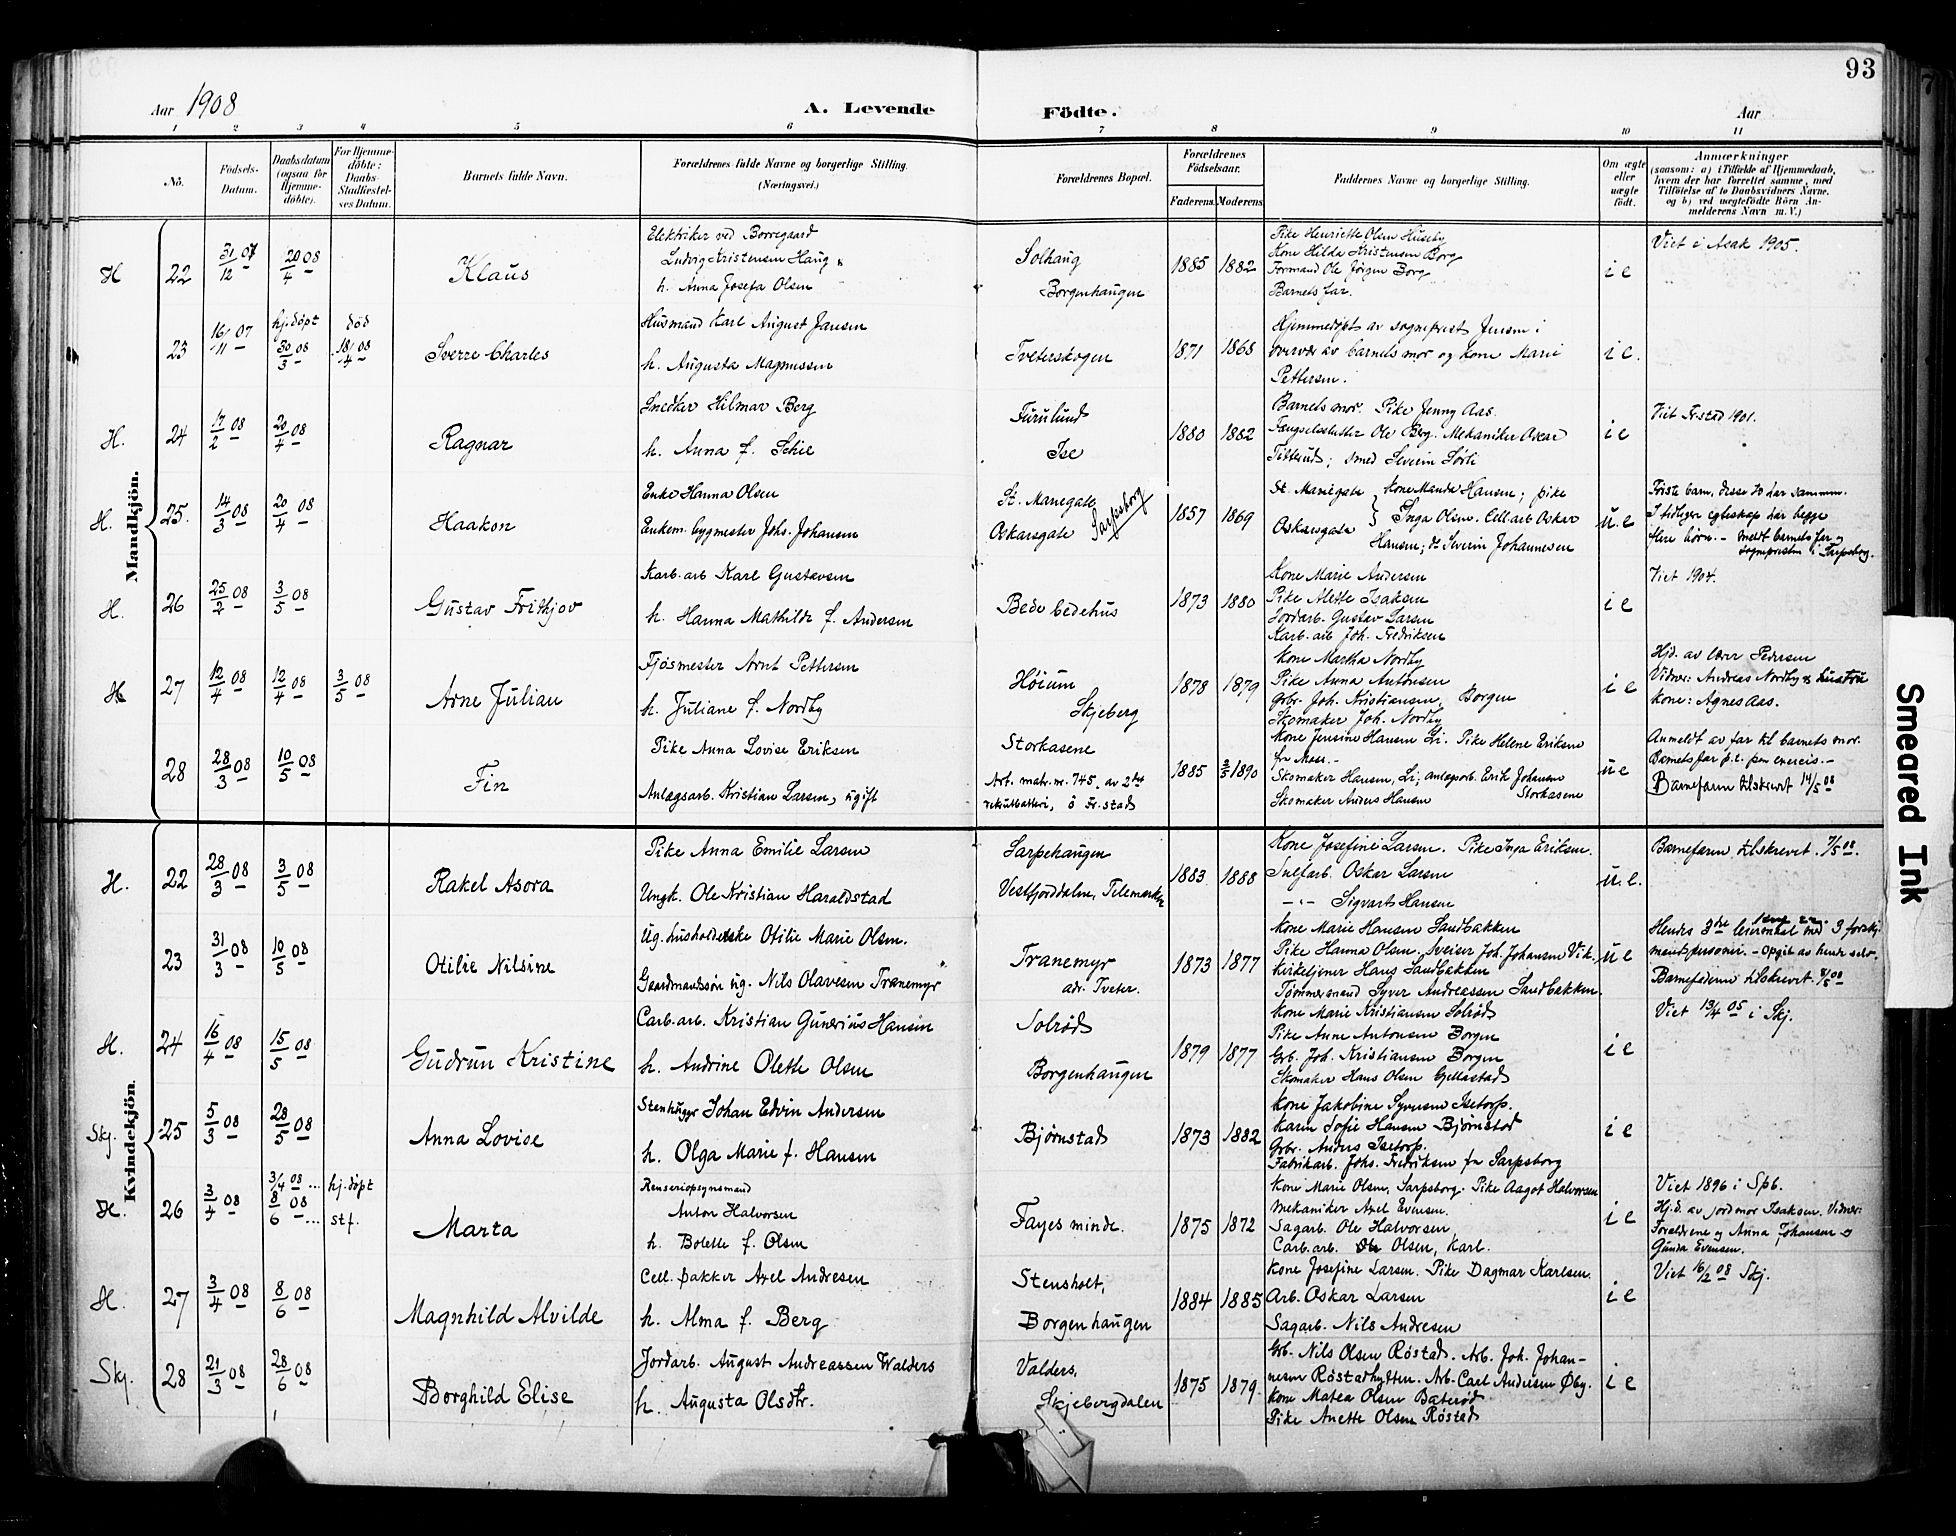 93
Aar 1908
A. Levende Födte.
Aar
1 2 3 4 5 6 7 8 9 10 11
No.
Födsels-Datum.
Daabsdatum (ogsaa for Hjemmedöbte).
For Hjemmedöbte: Daabs-Stadfæstelses Datum.
Barnets fulde Navn.
Forældrenes fulde Navne og borgerlige Stilling. (Næringsvei.)
Forældrenes Bopæl.
Forældrenes Födselsaar.
Faderens. Moderens.
Faddernes Navne og borgerlige Stilling.
Om ægte eller uægte födt.
Anmærkninger
(saasom: a) i Tilfælde af Hjemmedaab,
hvem der har forrettet samme, med
Tilföielse af to Daabsvidners Navne,
og b) ved uægtefödte Börn Anmelderens Navn m. V.)
Mandkjön.
H 22 31/12 07 20/4 08 Klaus
Elektriker ved Borregaard
Ludvig Kristensen Haug
h. Anna Josefa Olsen
Solhaug
Borgenhaugen
1885 1882
Pike Henriette Olsen Huseby
Kone Hilda Kristensen Borg
Formand Ole Jørgen Borg
Barnets far.
i e
Viet i Asak 1905.
23 16/11 07 hj.döpt 30/3 08 död 18/4 08 Sverre Charles
Husmand Karl August Jansen
h. Augusta Magnussen
Tveterskogen
1871 1868
Hjemmedöpt av sogneprest Jensen i
overvær av barnets mor og kone Marie
Pettersen.
i e.
H. 24 17/2 08 20/4 08 Ragnar
Snedker Hilmar Berg
h. Anna f. Schie
Furulund
Ise
1880 1882
Barnets mor. Pike Jenny Aas.
Fængselsslutter Ole Berg. Mekaniker Oscar
Titterud; smed Severin Sørli
i e
Viet Fr.stad 1901.
H. 25. 14/3 08 20/4 08 Haakon
Enke Hanna Olsen
Enkem. bygmester Johs. Johansen
St. Mariegate
Oskarsgate Sarpsborg
1857 1869
St. Mariegate Kone Manda Hansen; pike
Oskarsgate Inga Olsen. Cell.arb Oskar
Hansen; do Severin Johannesen
u. e
Første barn, disse to har sammen.
I tidligere egteskap har begge
flere börn. – meldt barnets far og
sognepresten i Sarpsborg.
H. 26 25/2 08 3/5 08 Gustav Fritkjov
Karb.arb Karl Gustavsen
h. Hanna Mathilde f. Andersen
Bede bedehus
1873 1880
Kone Marie Andersen
Pike Alette Isaksen
Jordarb. Gustav Larsen
Karb.arb Joh. Fredriksen
i e
Viet 1904.
H 27 12/4 08 12/4 08 3/5 08 Arne Julian
Fjösmester Arnt Pettersen
h. Juliane f. Nordby
Høium
Skjeberg
1878 1879
Kone Martha Nordby
Pike Anna Antonsen
Grbr. Joh. Kristiansen, Borgen
Skomaker Joh. Nordby
i e
Hjd. av lærer Pedersen
Vidner: Andreas Nordby og hustru
Kone: Agnes Aas.
28 28/3 08 10/5 08 Fin
Pike Anna Lovise Eriksen
Anlægsarb. Kristian Larsen, ugift
Storkasene
Art. matr. nr. 745, av 2det
rekrutbatteri, ö Fr.stad
1885 2/5 1890
Kone Jensine Hansen Li. Pike Helene Eriksen
fra Moss. –
Skomaker Hansen, Li; anlægsarb. Erik Johansen Storkasene
Skomaker Anders Hansen
u e
Anmeldt av far til barnets mor.
Barnets far p.t. paa exercis. –
Barnefaren tilskrevet 14/5 08
Kvindekjön.
H. 22 28/3 08 3/5 08 Rakel Asora
Pike Anna Emilie Larsen
Ungk. Ole Kristian Haraldstad
Sarpehaugen
Vestfjorddalen, Telemarken
1883 1888
Kone Josefine Larsen. Pike Inga Eriksen.
Sulfarb. Oskar Larsen
–"– Sigvart Hansen
u. e.
Barnefaren tilskrevet. 7/5 08.
23 31/3 08 10/5 08 Otilie Nilsine
Ug. husholderske Otilie Marie Olsen.
Gaardmandssön ug. Nils Olavesen Tranemyr
Tranemyr
adr. Tveter.
1873 1877
Kone Marie Hansen Sandbakken
Pike Hanna Olsen. Sveiser Joh. Johansen Vik.
Kirketjener Hans Sandbakken
Tømmermand Syver Andreassen Sandbakken.
u e
Hendes 3die leiermaal med 3 forskj.
mandspersoner. – Opgit av hende selv.
Barnefaderen tilskrevet. 8/5 08
H. 24 16/4 08 15/5 08 Gudrun Kristine
Carb.arb. Kristian Gunerius Hansen
h. Andrine Olette Olsen
Solrød
Borgenhaugen
1879 1877
Kone Marie Kristiansen Solrød
Pike Anne Antonsen Borgen
Grb. Joh. Kristiansen Borgen
Skomaker Hans Olsen Gellestad
i e
Viet 13/4 05 i Skj.
Skj. 25 5/3 08 28/5 08 Anna Lovise
Stenhugger Johan Edvin Andersen
h. Olga Marie f. Hansen
Bjørnstad
1873 1882
Kone Jakobine Syversen Isetorp.
Karen Sofie Hansen Bjørnstad
Grbr. Anders Isetorp.
Fabrikarb. Johs. Fredriksen fra Sarpsborg
i e
H. 26 3/4 08 3/4 08... hj.døpt 8/6 08... stf. Marta
Renseriopsynsmand
Anton Halvorsen
h. Bolette f. Olsen
Fayes minde.
1875 1872
Kone Marie Olsen, Sarpsborg. Pike Aagot Halvorsen
Mekaniker Axel Evensen.
Sagarb. Ole Halvorsen
Carb.arb. Olsen, Karl.
i e
Viet 1896 i Spb.
Hj.d. av jordmor Isaksen. Vidner:
Forældrene og Anna Johansen og
Gunda Evensen.
H. 27 3/4 08 8/6 08 Magnhild Alvilde
Cell. pakker Axel Andresen
h. Alma f. Berg
Stensholt,
Borgenhaugen
1884 1885
Kone Josefine Larsen. Pike Dagmar Karlsen.
Arb. Oskar Larsen
Sagarb. Nils Andresen
i e
Viet 16/2 08 Skj.
Skj. 28 21/3 08 28/6 08 Borghild Elise
Jordarb. August Andreassen Walders
h. Augusta Olsdtr.
Valders,
Skjebergdalen
1875 1879
Grb. Nils Olsen Røstad. Arb. Joh. Johan-
nesen Røstadhytten. Arb. Carl Andersen Øby.
Kone Matea Olsen Baterød
Pike Anette Olsen Røstad
i e
Smeared Ink
7